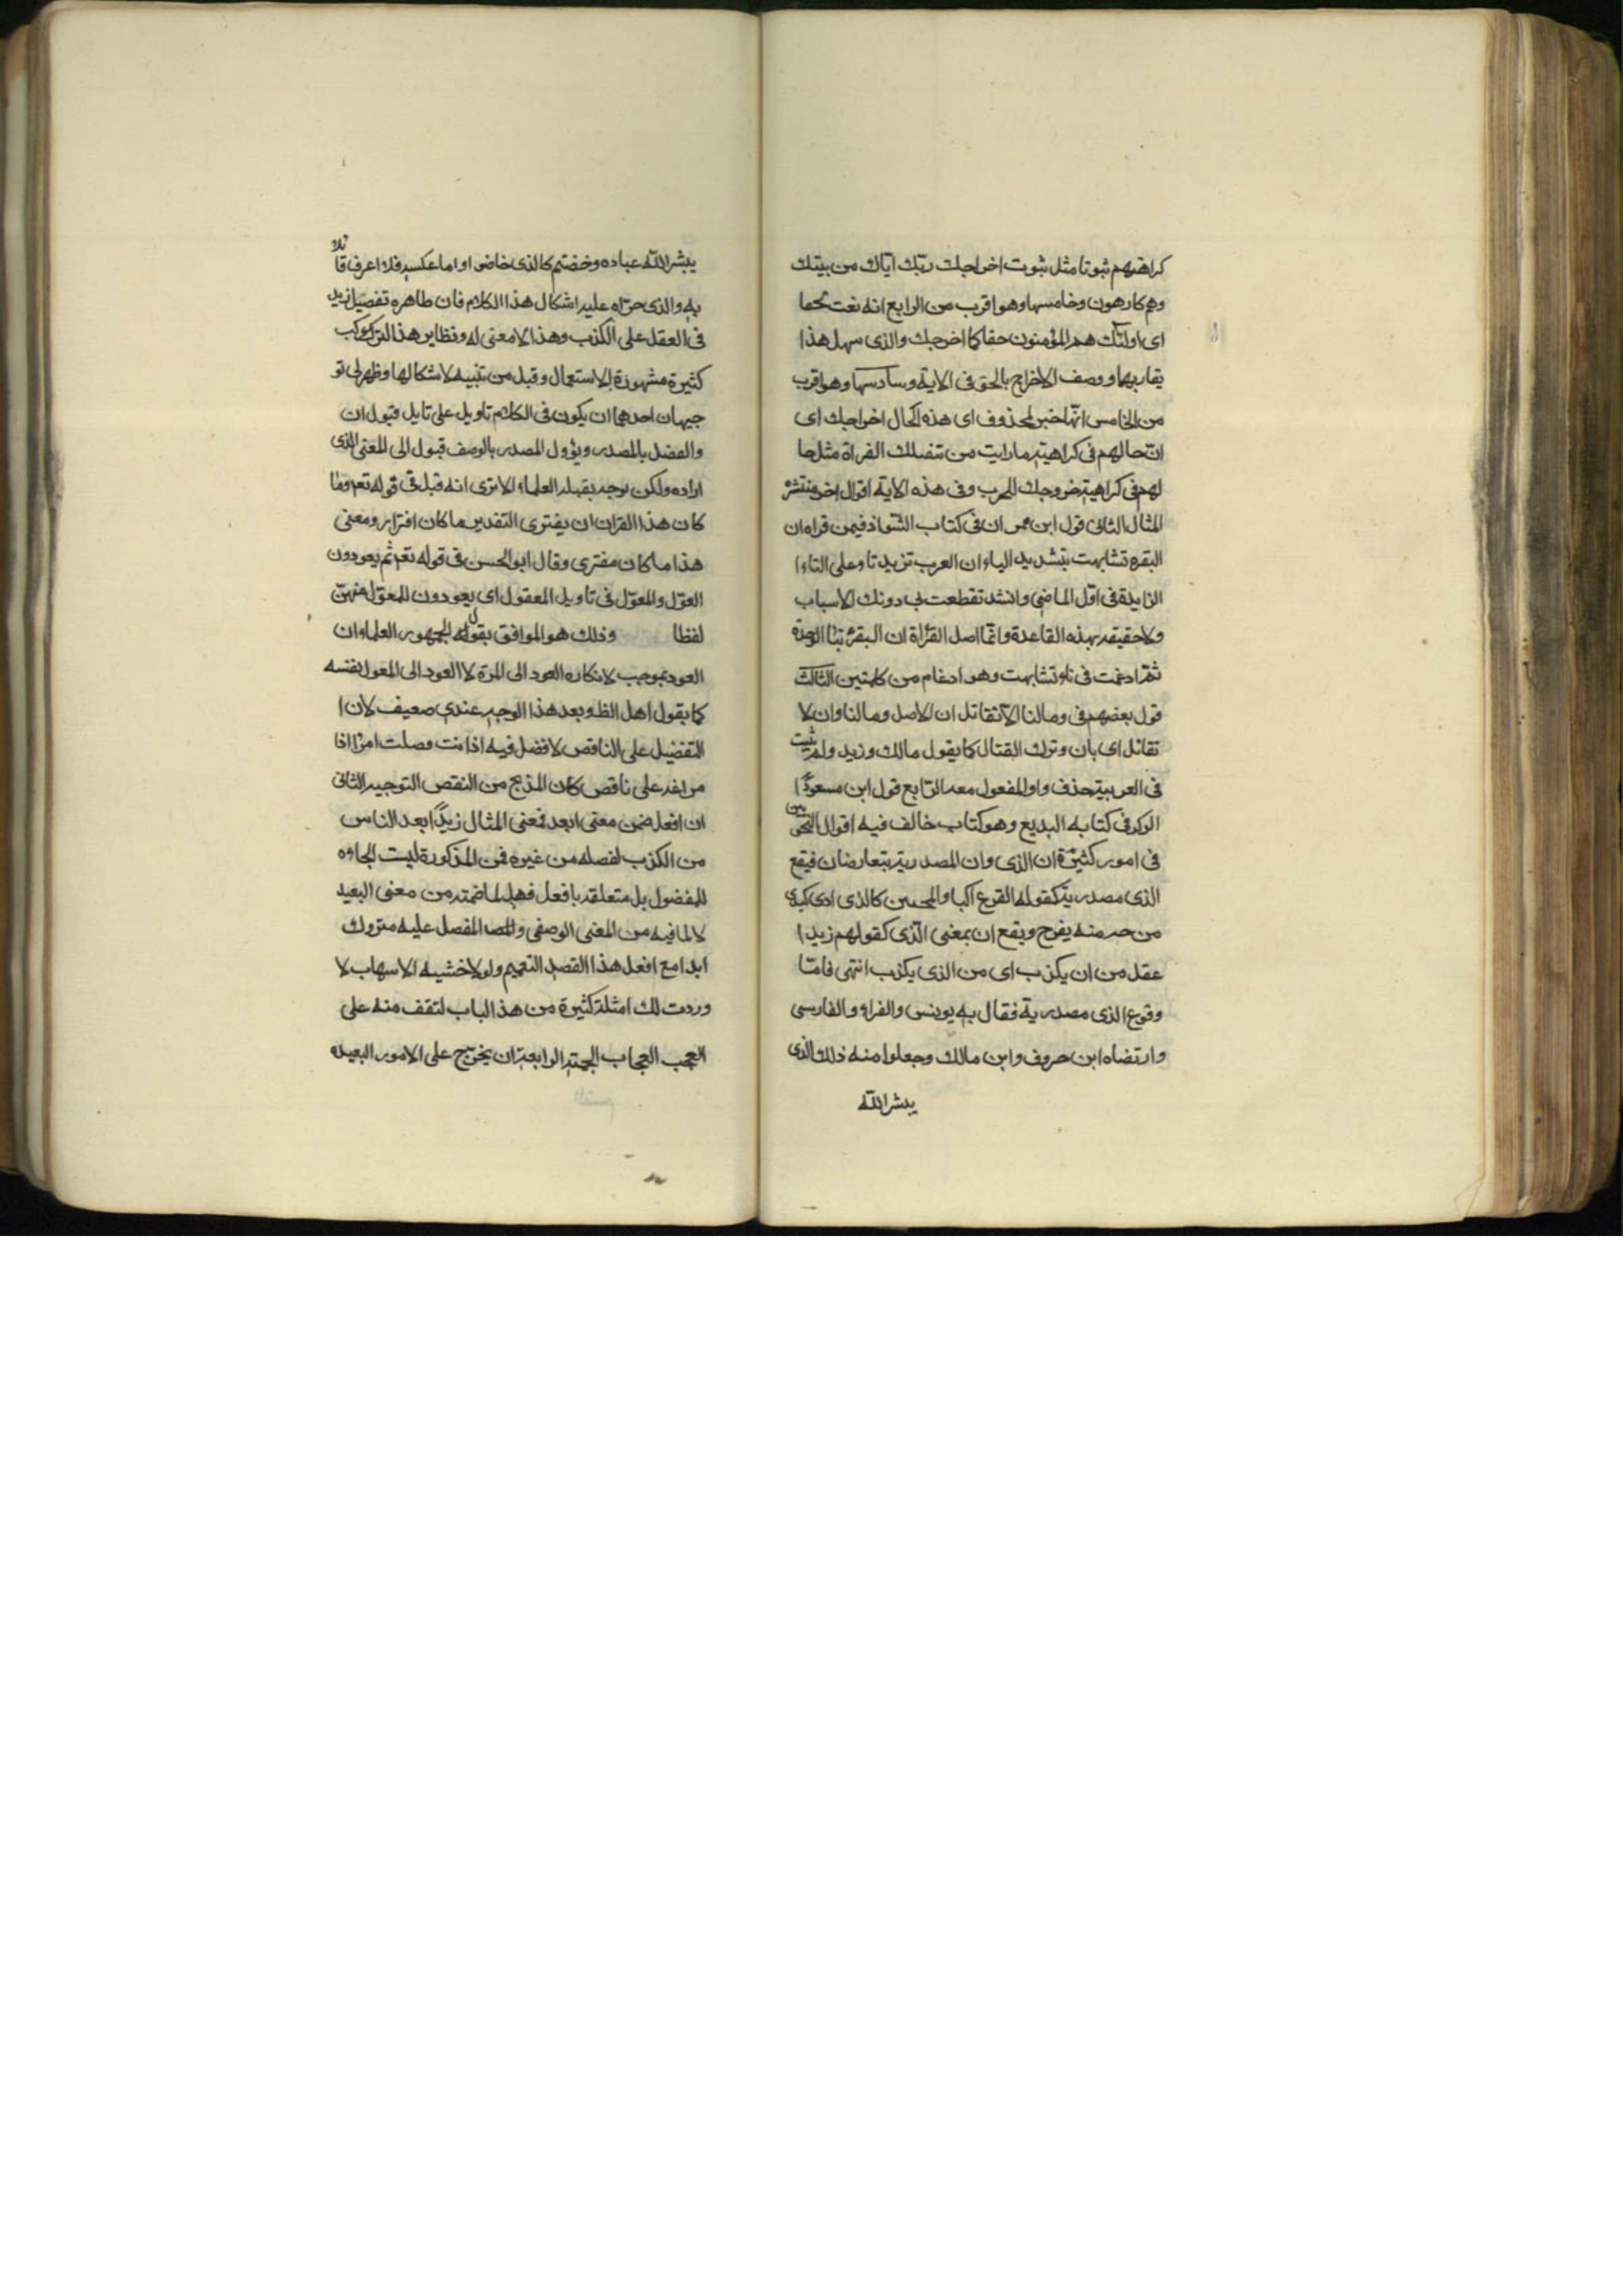 كراهتهم ثبوتا مثل ثبوت اخراجك ربّك ايّاك من بيتك
وهم كارهون وخامسها وهو اقرب من الرابع انه نعت لحقا
اى اولئك هم المؤمنون حقا كما اخرجك والذى سهل هذا
يقاربهما ووصف الاخراج بالحق فى الاية وسادسها وهو اقرب
من الخامس انّها خبر لمحذوف اى هذه الحال اخراجك اى
انّ حالهم فى كراهية ما رايت من تنفيلك الغزاة مثل حا
لهم فى كراهية خروجك للحرب وفى هذه الاية اقوال اخر منتشرة
المثال الثانى قول ابن مهران فى كتاب الشواذ فيمن قراه ان
البقره تشابهت بتشديد الياء ان العرب تزيد تاء على التاء ا
الزايدة فى اوّل الماضى وانشد تقطعت بى دونك الاسباب
ولا حقيقه بهذه القاعدة وانّما اصل القراة ان البقرة بتاء الوحدة
ثمّ ادغمت فى تاء تشابهت وهو ادغام من كلمتين الثالث
قول بعضهم فى ومالنا الّا نقاتل ان الاصل ومالنا وان لا
نقاتل اى بان وترك القتال كما يقول مالك وزيد ولم يثبت
فى العربية حذف واو المفعول معه الرّابع قول ابن مسعود ا
الوكى فى كتابه البديع وهو كتاب خالف فيه اقوال النحويين
فى امور كثيرة ان الذى وان المصدرية يتعارضان فيقع
الذى مصدرية كقوله القرع اكباد المحبين كالذى ادى كبدى
من حب منه يفرح ويقع ان بمعنى الّذى كقولهم زيد ا
عقل من ان يكذب اى من الذى يكذب انتهى فامّا
وقوع الذى مصدرية فقال به يونس والفراء والفارسى
وارتضاه ابن خروف وابن مالك وجعلوا منه ذلك الذى
يبشر الله
يبشر الله عباده وخضتم كالذى خاضوا واما عكسه فلا اعرف قائلا
به والذى جرّاه عليه اشكال هذا الكلام فان ظاهره تفضيل زيد
فى العقل على الكذب وهذا لا معنى له ونظاير هذا التركيب
كثيرة مشهورة الاستعمال وقبل من تنبيه لاشكالها وظهر لى تو
جيهان احدهما ان يكون فى الكلام تاويل على تاويل فيول ان
والفضل بالمصدر ويؤول المصدر بالوصف فيول الى المعنى الذى
اراده ولكن بوجه يقبله العلماء الا ترى انه قيل فى قوله تعم وما
كان هذا القران ان يفترى التقدير ما كان افتراء ومعنى
هذا ما كان مفترى وقال ابو الحسن فى قوله تعم ثم يعودون
القول والمعوّل فى تاويل المعقول اى يعودون للمعوّل فيهنّ
لفظا وذلك هو الموافق بقول الجمهور العلماء ان
العود بموجب لانكاره العود الى المرة لا العود الى المعول نفسه
كما يقول اهل الظ وبعد هذا الوجه عندى ضعيف لان ا
التفضيل على الناقص لا فضل فيه اذا انت فضلت امرءا اذا
مراغد على ناقص كان المذبح من النقص التوجيه الثانى
ان افعل ضمن معنى ابعد فمعنى المثال زيدًا بعد الناس
من الكذب لفصله من غيره فمن المذكورة ليست الجاره
للمفضول بل متعلقه بافعل فهل لما ضمنه من معنى البعيد
لا لما فيه من المعنى الوصفى والمفصل عليه متروك
ابدا مع افعل هذا القصد التعميم ولولا خشيه الاسهاب لا
وردت لك امثلة كثيرة من هذ الباب لتقف منه على
العجب العجاب الجهة الرابعة ان يخرّج على الامور البعيده